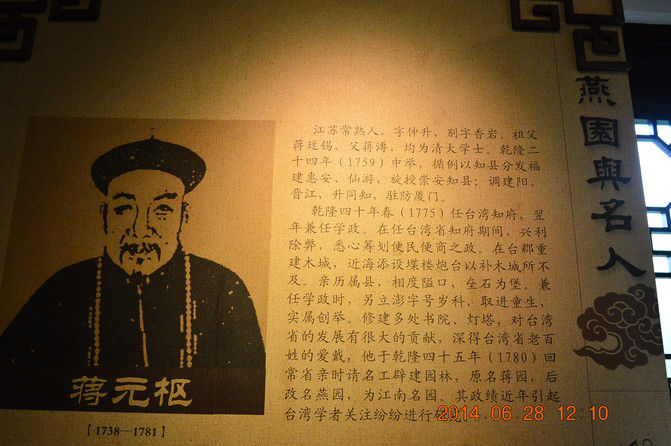 江苏常熟人，字仲升，别字香岩。祖父
蒋廷锡，父蒋溥，均为清大学士。乾隆二
十四年（1759）中举，循例以知县分发福
建惠安、仙游，旋授崇安知县；调建阳、
晋江，升同知，驻防厦门。
乾隆四十年春（1775）任台湾知府，翌
年兼任学政。在任台湾省知府期间，兴利
除弊，悉心筹划便民便商之政。在台郡重
建木城，近海添设堞楼炮台以补木城所不
及。亲历属县，相度隘口，垒石为堡。兼
任学政时，另立澎字号岁科，取进童生，
实属创举。修建多处书院、灯塔，对台湾
省的发展有很大的贡献，深得台湾省老百
姓的爱戴，他于乾隆四十五年（1780）回
常省亲时请名工辟建园林，原名蒋园，后
改名燕园，为江南名园。其政绩近年引起
台湾学者关注纷纷进行研究
蒋元枢
【1738—1781】
燕園與名人
2014.06.28 12 10